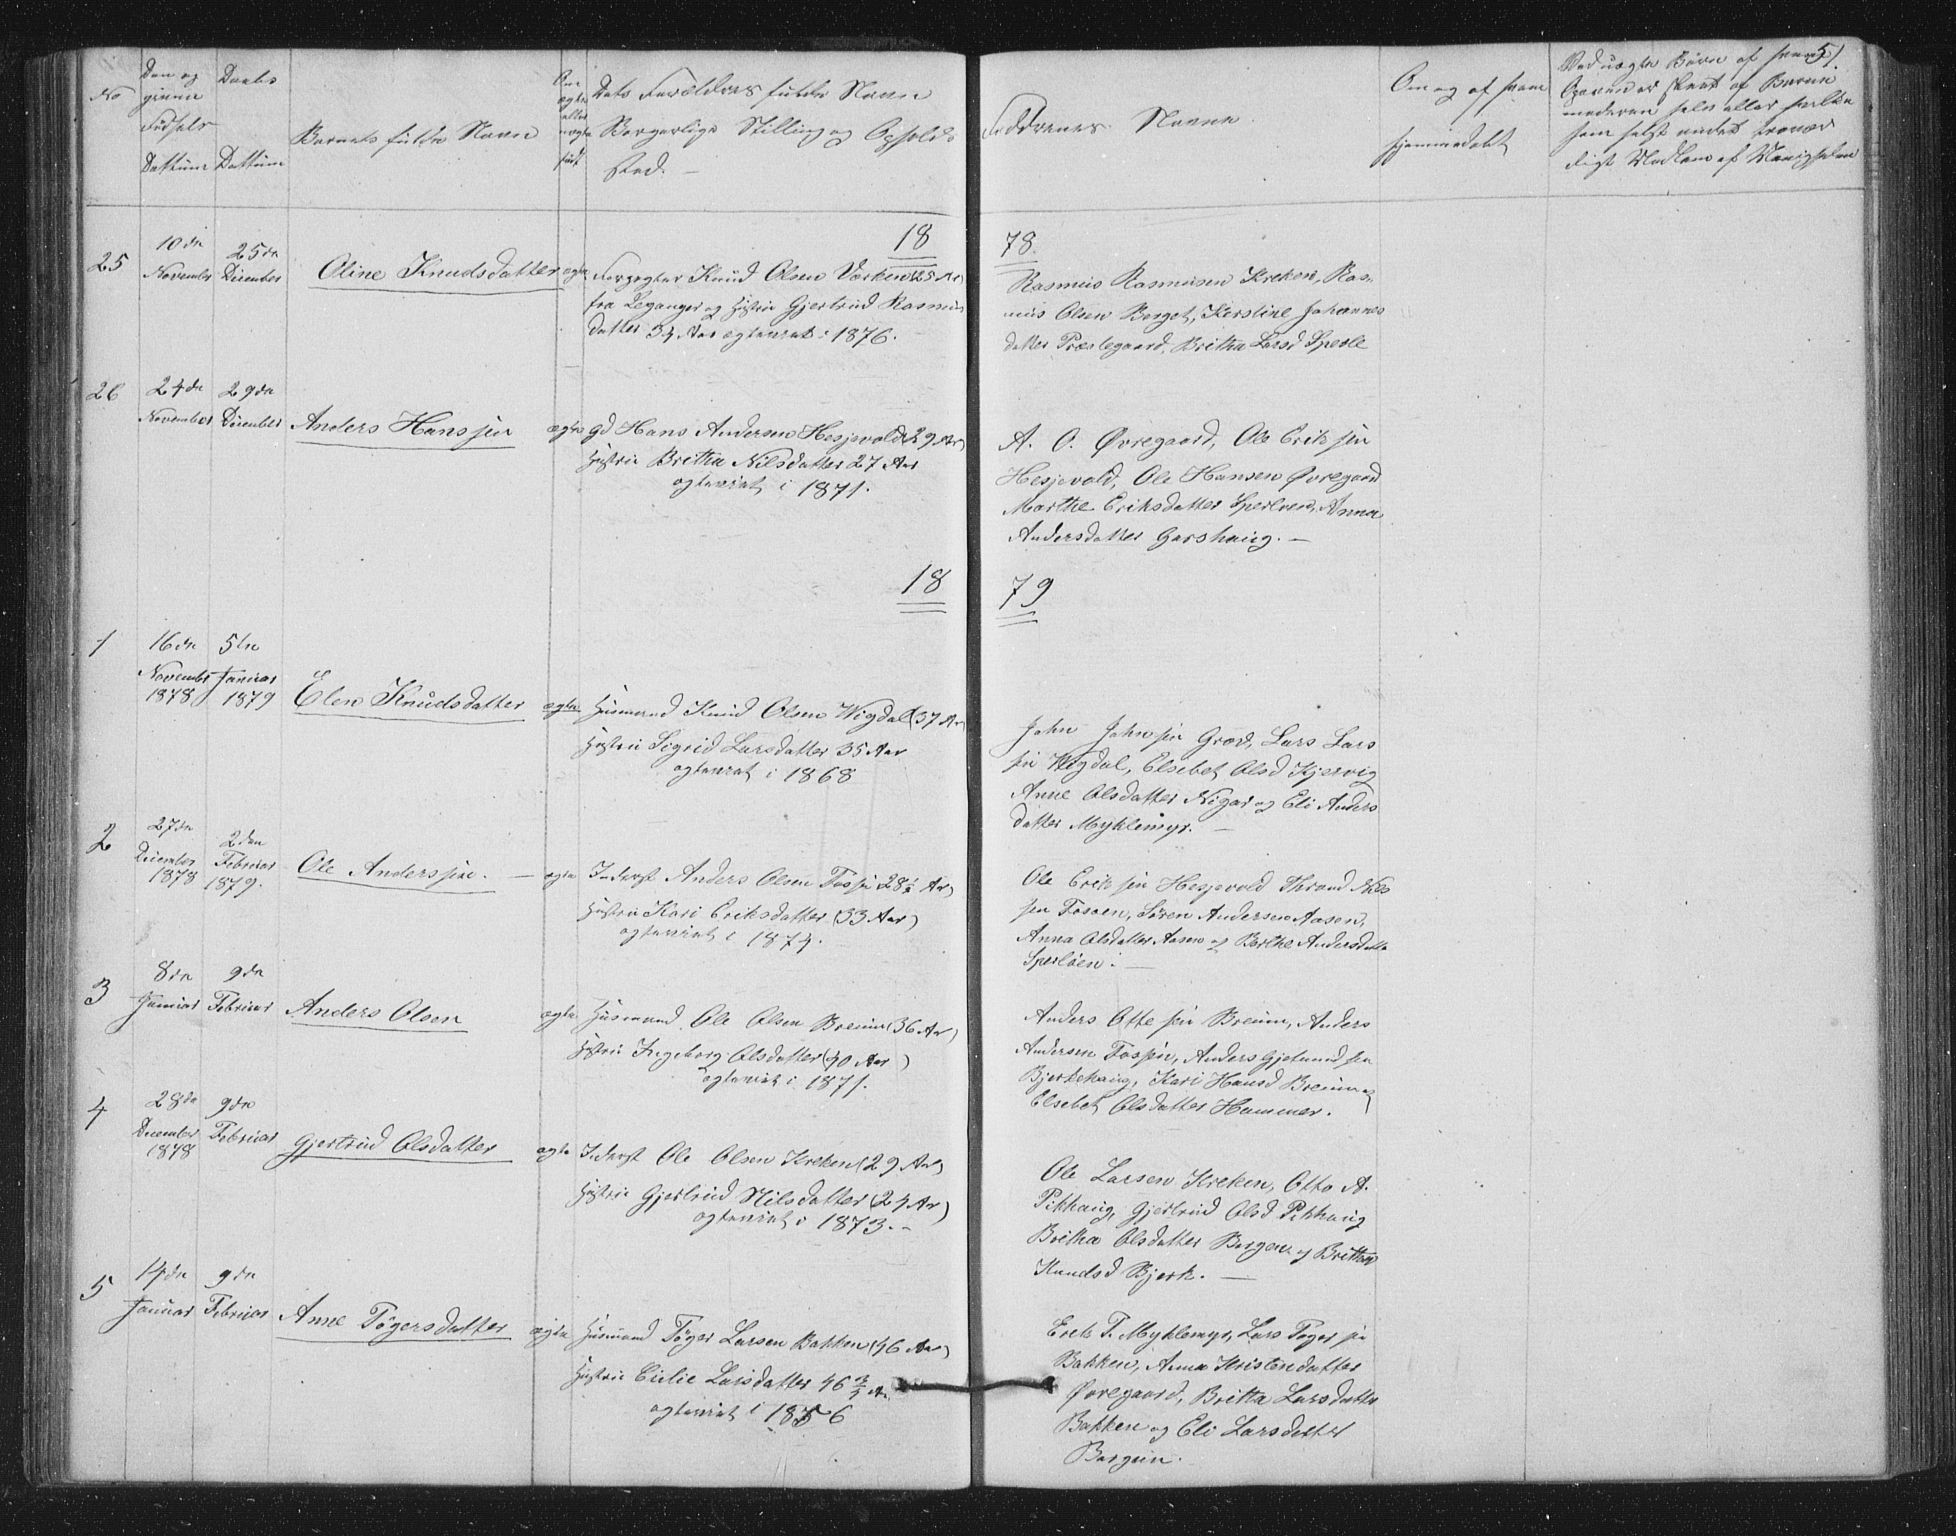 51.
No
Den og
givne
Fødsels
Dattum
Daabs
Dattum
Barnets fulde Navn
Om
ægte
eller
uægte
født
Dets Forældres fulde Navn
Borgerlige Stilling og Opholds
sted. —
Faddrenes Navne.
Om og af hvem
hjemmedøbt
Ved uægte Børn af hvem
18
78.
25
10de
November
25de
Desember
Oline Knudsdatter
ægte
Forpagter Knud Olsen Værken (25 Aar)
fra Leganger og Hustru Gjertrud Rasmus
datter 34 Aar ægteviet i 1876.
Rasmus Rasmusen Kreken, Ras-
mus Olsen Berget, Kerstine Johannes
datter Præstegaard, Britha Larsd Sperle
26
24de
November
29de
Desember
Anders Hanssen
ægte
gd Hans Andersen Hesjevold (29 Aar)
Hustru Britha Nilsdatter 27 Aar
ægteviet i 1871.
A. O. Øvregaard, Ole Erik sen
Hesjevold, Ole Hansen Øvregaard
Marthe Eriksdatter Sperleen, Anna
Andersdatter Garshaug. —
18
79
1
16de
November
1878
5te
Januar
1879
Elen Knudsdatter
ægte
Husmand Knud Olsen Wigdal (37 Aar)
Hustru Sigrid Larsdatter 35 Aar
ægteviet i 1868
John John sen Grov, Lars Lars
sen Wigdal, Elsebet Olsd Kjervig
Anne Olsdatter Nigar og Eli Anders
datter Myklemyr. —
2
27de
Desember
1878
2den
Februar
1879.
Ole Anderssen. —
ægte
Inderst Anders Olsen Fossen (28½ Aar)
Hustru Kari Eriksdatter (33 Aar)
ægteviet i 1874.
Ole Erik sen Hesjevold Thrond Nils
sen Fossen, Søren Andersen Aasen,
Anna Olsdatter Aasen og Barthe Andersdatter
Sperleen. —
3
8de
Januar
9de
Februar
Anders Olsen
ægte
Husmand Ole Olsen Breum (36 Aar)
Hustru Ingeborg Olsdatter (40 Aar)
ægteviet i 1871.
Anders Otte sen Breum, Anders
Andersen Fossen, Anders Gjermund sen
Bjerkehaug, Kari Hansd Breum og
Elsebet Olsdatter Hammer.
4
28de
Desember
1878
9de
Februar
Gjertrud Olsdatter
ægte
Inderst Ole Olsen Kreken (29 Aar)
Hustru Gjertrud Nilsdatter (24 Aar)
ægteviet i 1873. –
Ole Larsen Kreken, Otto A.
Pikhaug, Gjertrud Olsd Pikhaug
Britha Olsdatter Bergene og Britha
Knudsd Bjerk. —
5
14de
Januar
9de
Februar
Anne Tøgersdatter
ægte
Husmand Tøger Larsen Bakken (46 Aar)
Hustru Cicilie Larsdatter 46
ægteviet i 1856
Erik T. Myklemyr, Lars Tøger sen
Bakken, Anna Kristendatter
Øvregaard, Britta Larsdatter
Bakken og Eli Larsdatter
Bergum.